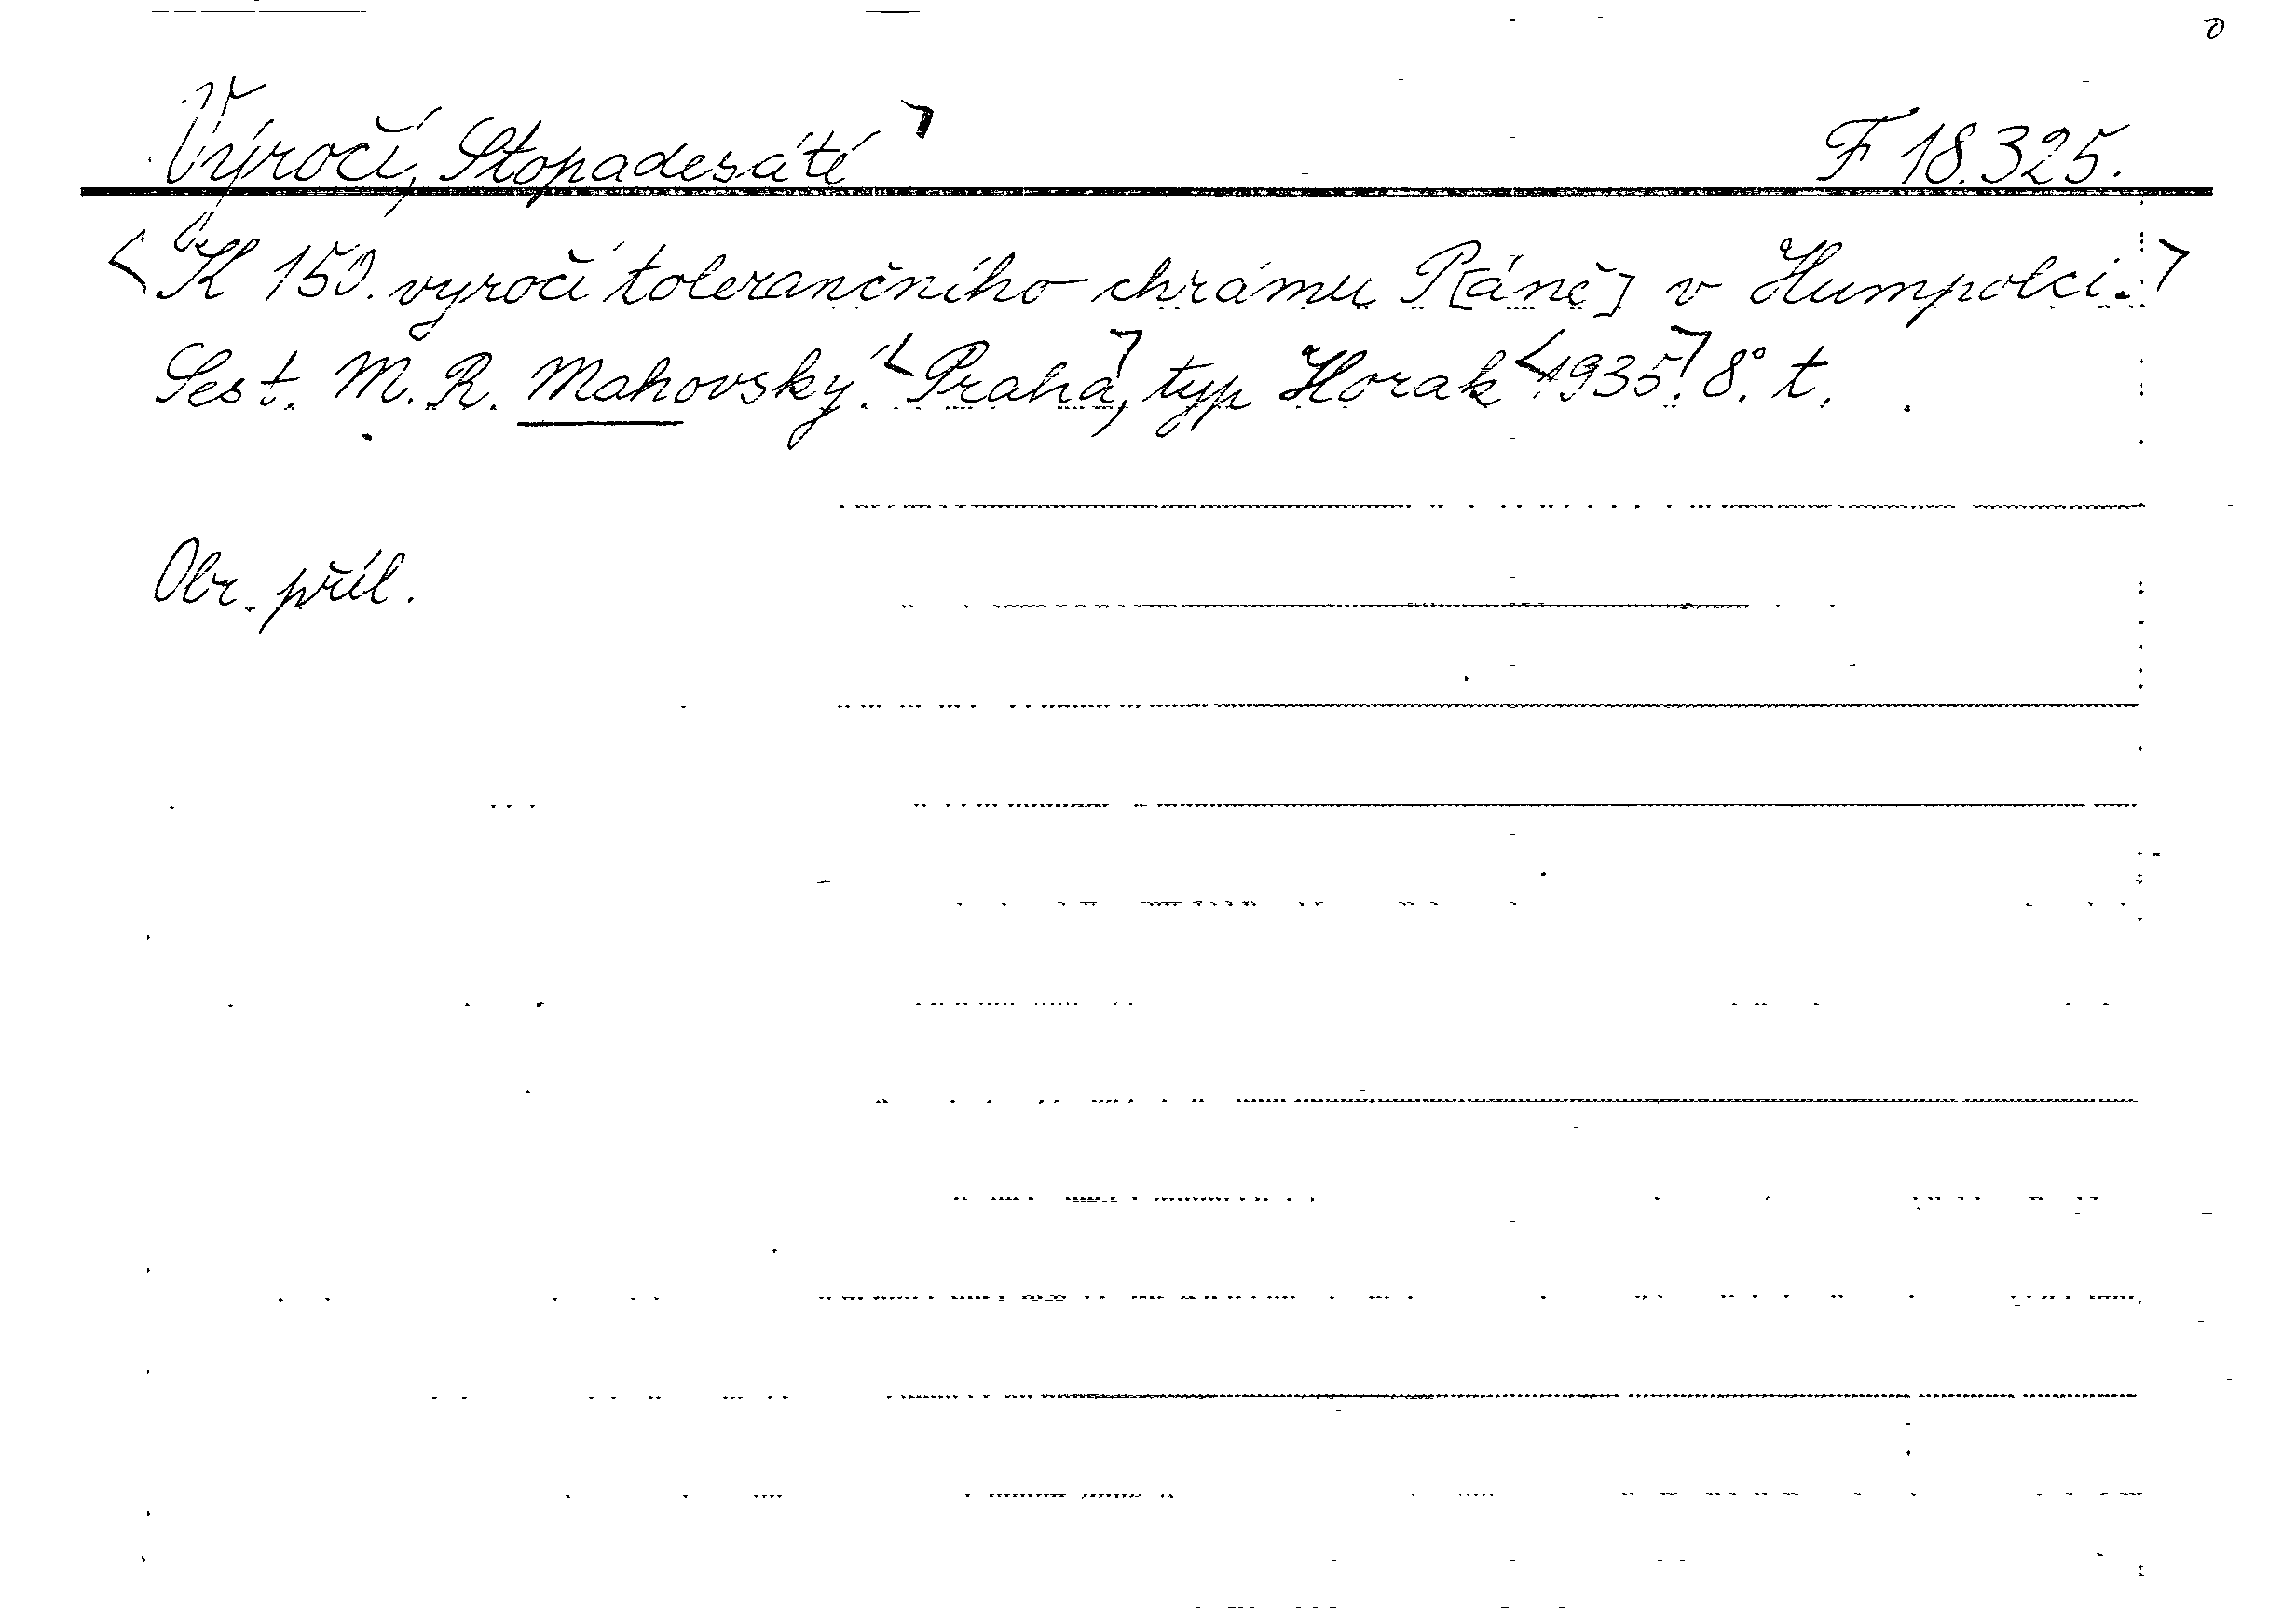 Výročí, Stopadesáté F 18.325.
K 150. vyročí tolerančního chrámu P[áně] v Humpolci.
Sest. M. R. Mahovský. Praha, typ Horak 1935. 8°. t.
Obr. příl.